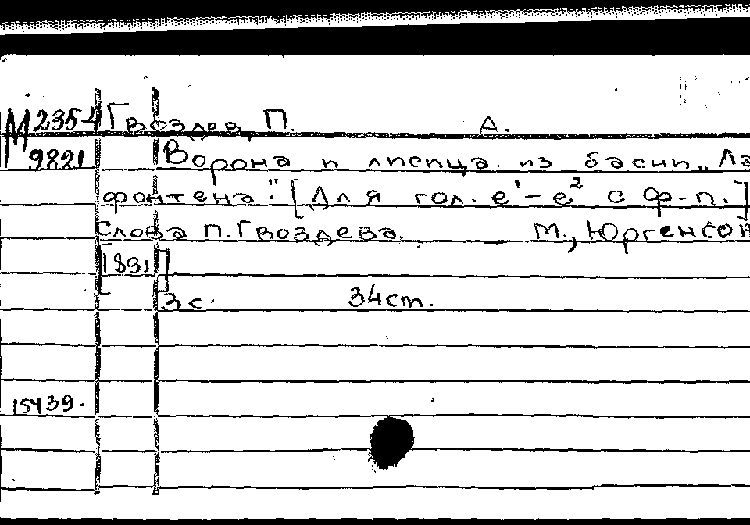 М 235-4 Гвоздев, П. А.
9821 Ворона и лисица из басни „Ла
фонтена". [Для гол. e¹-e² с ф-п.]
Слова П. Гвоздева. М., Юргенсон
[1891]
3 с. 34 ст.
15439.